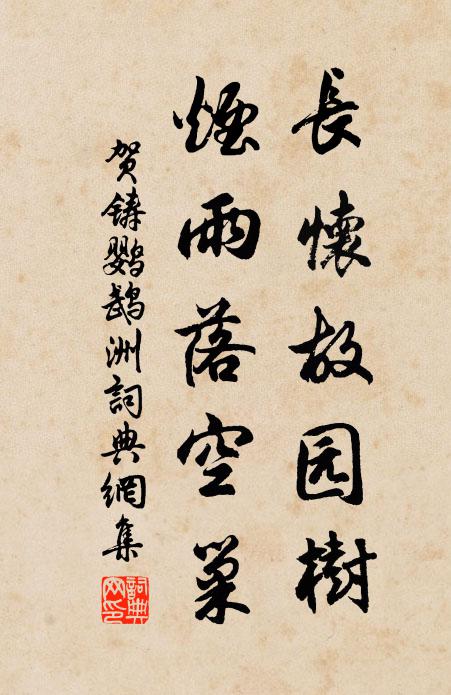 長懷故园樹
煙雨落空巢
贺鑄鸚鵡洲詞典網集
詞典
网印